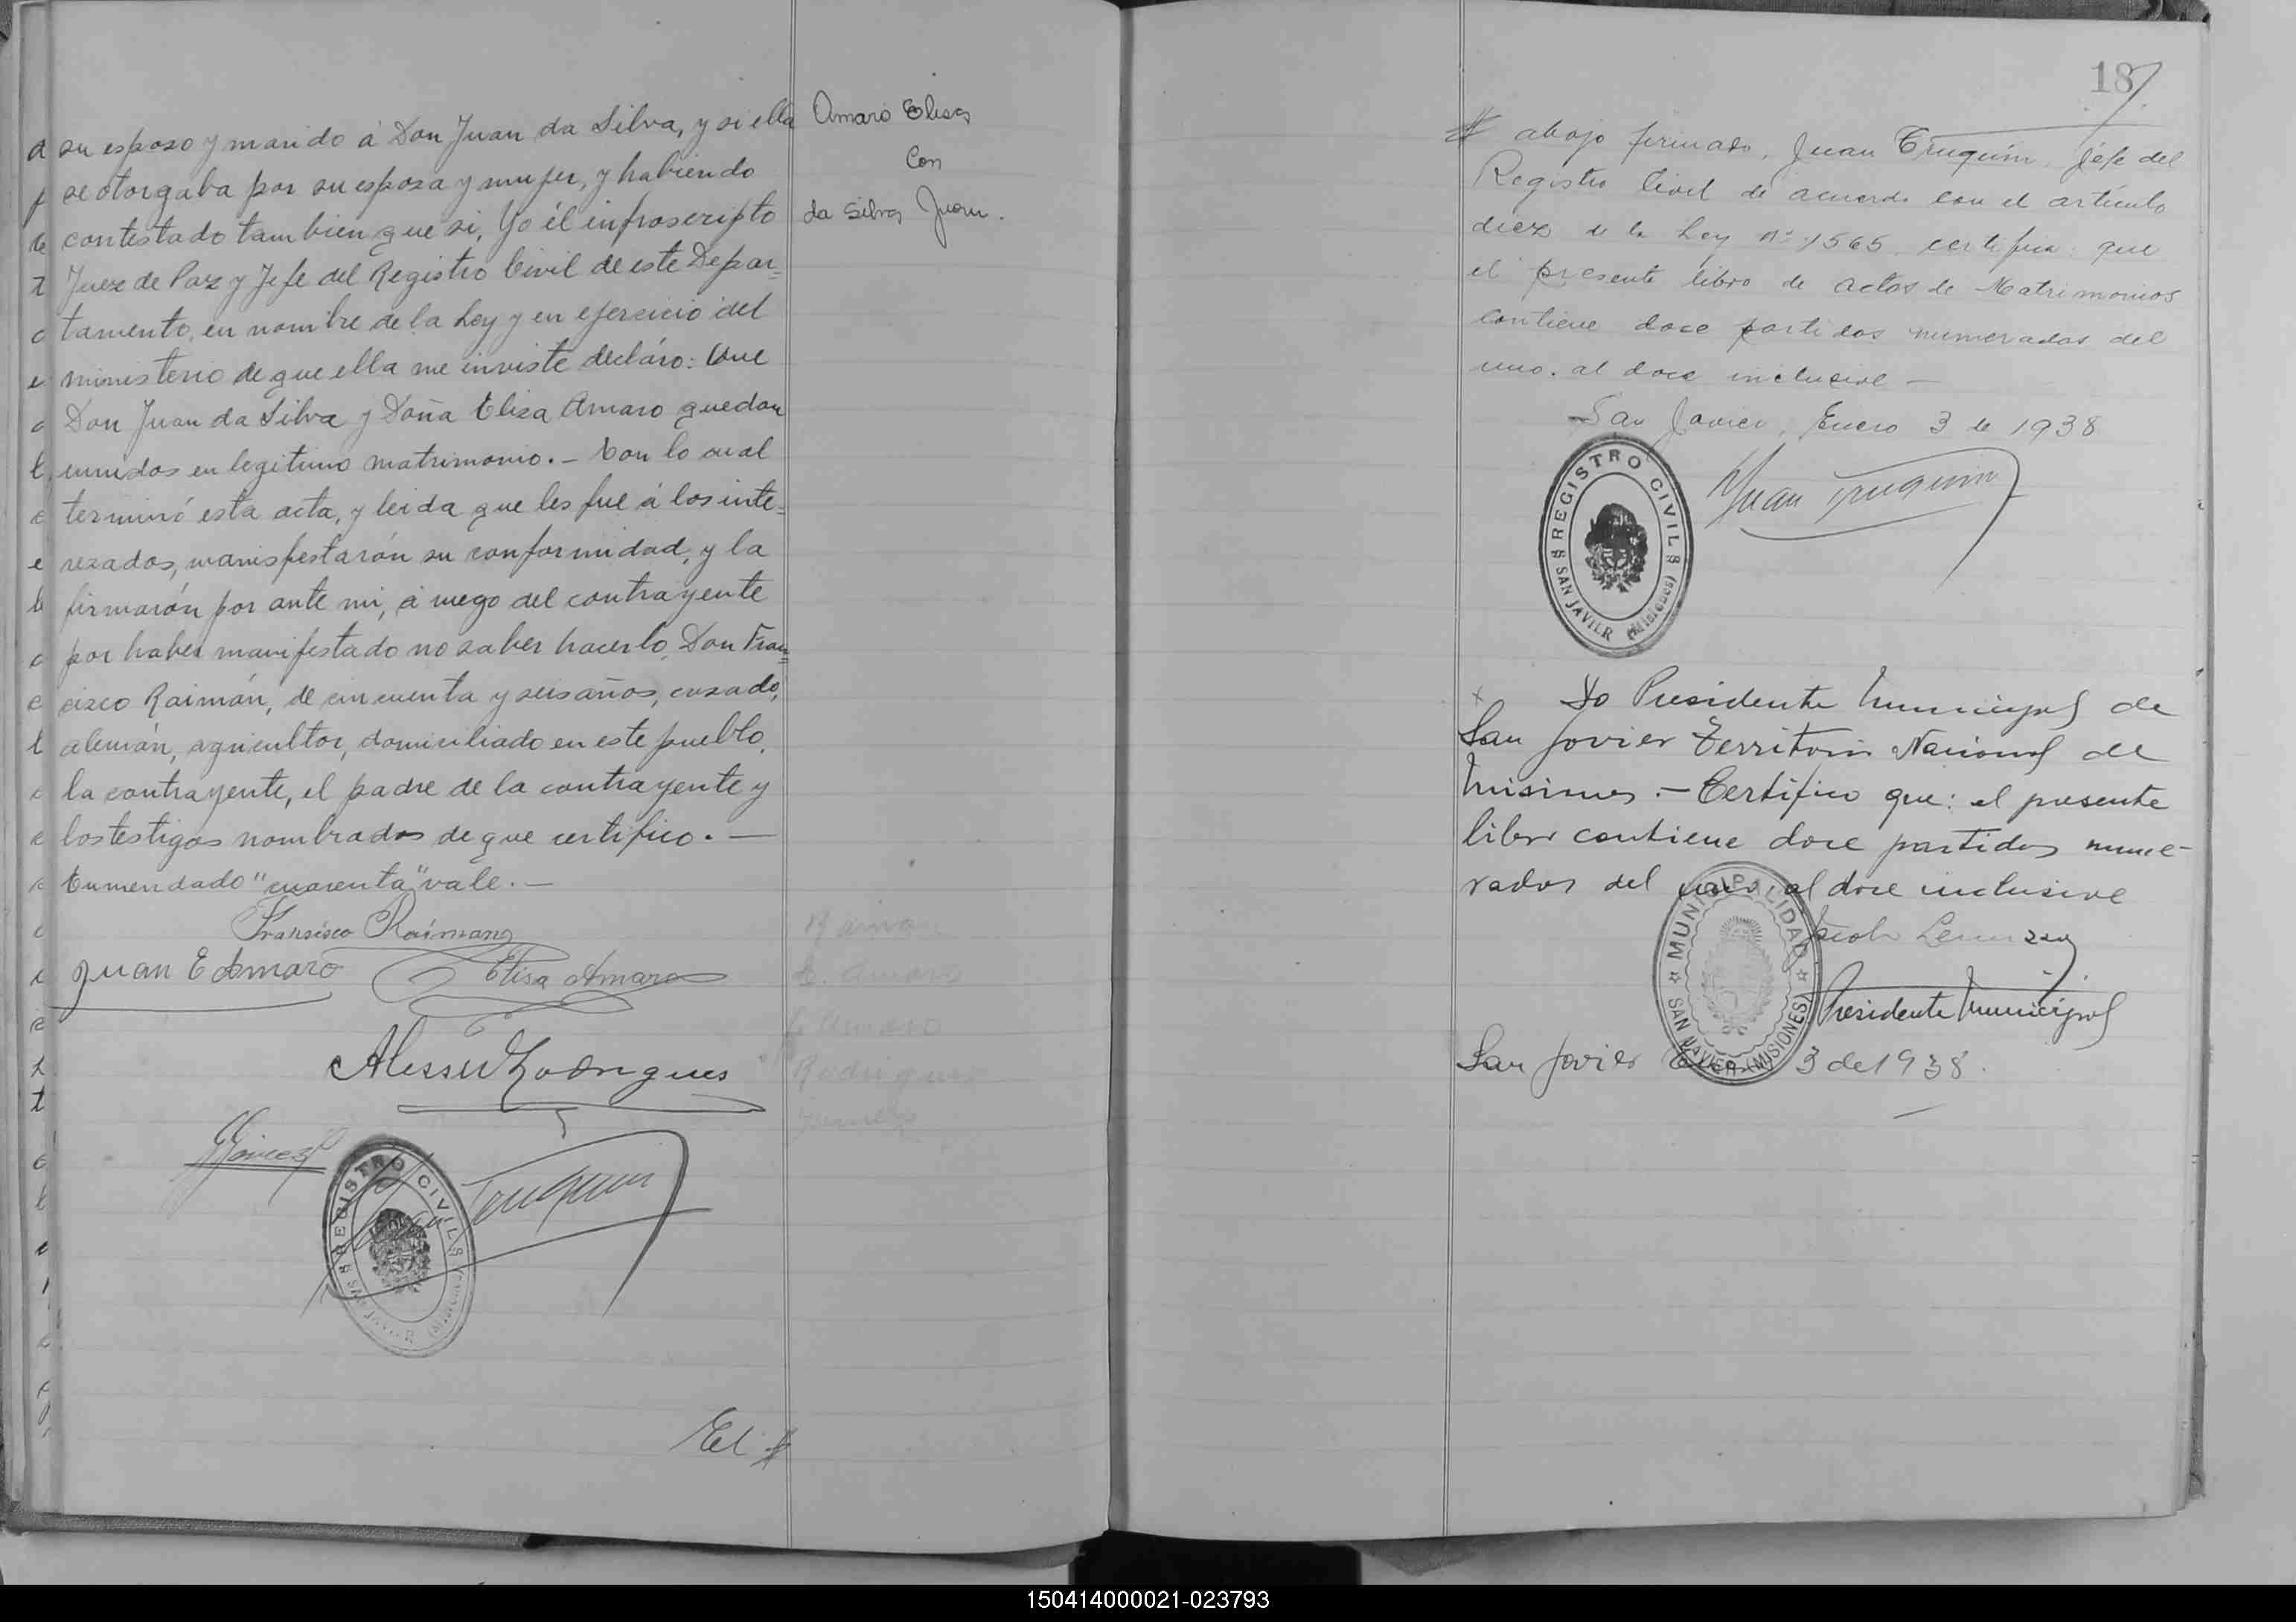 su esposo y marido á Don Juan da Silva, y si ella
se otorgaba por su esposa y mujer, y habiendo
contestado tambien que si, Yo él infrascripto
Juez de Paz y Jefe del Registro Civil de este Depar=
tamento, en nombre de la Ley y en ejercicio del
ministerio de que ella me inviste decláro: Que
Don Juan da Silva y Doña Eliza Amaro quedan
unidos en legitimo matrimonio.- Con lo cual
terminó esta acta, y leida que les fue á los inte=
rezados, manisfestarón su conformidad, y la
firmarón por ante mi, á ruego del contrayente
por haber manifestado no saber hacerlo, Don Fran=
cizco Raimán, de cincuenta y seis años, cazado,
alemán, agricultor, domiciliado en este pueblo,
la contrayente, el padre de la contrayente y
los testigos nombrados de que certifico.—
Enmendado "cuarenta" vale.—
Fransisco Raimann
Juan E Amaro
Elisa Amaro
Rodrigues
REGISTRO CIVIL
SAN JAVIER (Misiones)
Juan Truquin
El #
Amaro Elisa
Con
da Silva Juan.
Raiman
E. Amaro
E Amaro
Rodrigues
187
# abajo firmado, Juan Truquin, Jefe del
Registro Civil de acuerdo con el artículo
diez de la Ley Nº 1565 certifica: que
el presente libro de actas de Matrimonios
contiene doce partidas numeradas del
uno. al doce inclusive —
San Javier, Enero 3 de 1938
Juan Truquin
REGISTRO CIVIL
SAN JAVIER (Misiones)
x Yo Presidente Municipal de
San Javier Territorio Nacional de
Misiones.— Certifico que: el presente
libro contiene doce partidas nume-
radas del uno al doce inclusive
MUNICIPALIDAD
SAN JAVIER (MISIONES)
Presidente Municipal
San Javier Enero 3 de 1938.
150414000021-023793